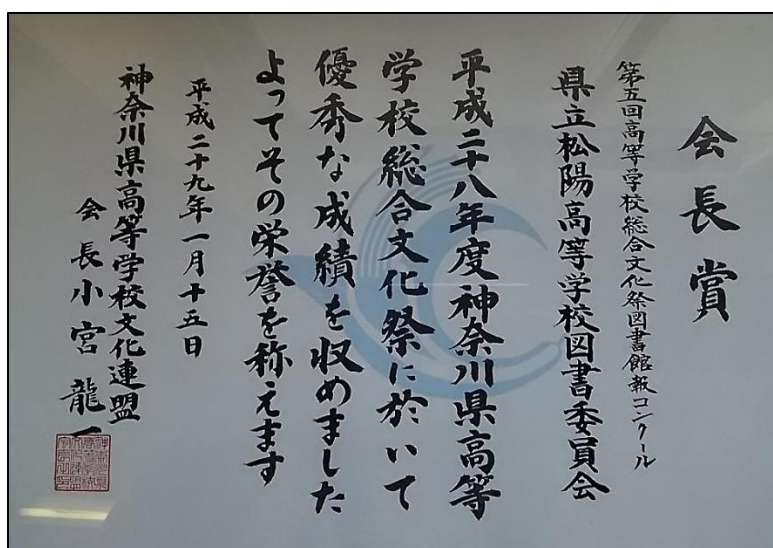 会長賞
第五回高等学校総合文化祭図書館報コンクール
県立松陽高等学校図書委員会
平成二十八年度神奈川県高等
学校総合文化祭に於いて
優秀な成績を収めました
よってその栄誉を称えます
平成二十九年一月十五日
神奈川県高等学校文化連盟
会長小宮龍一